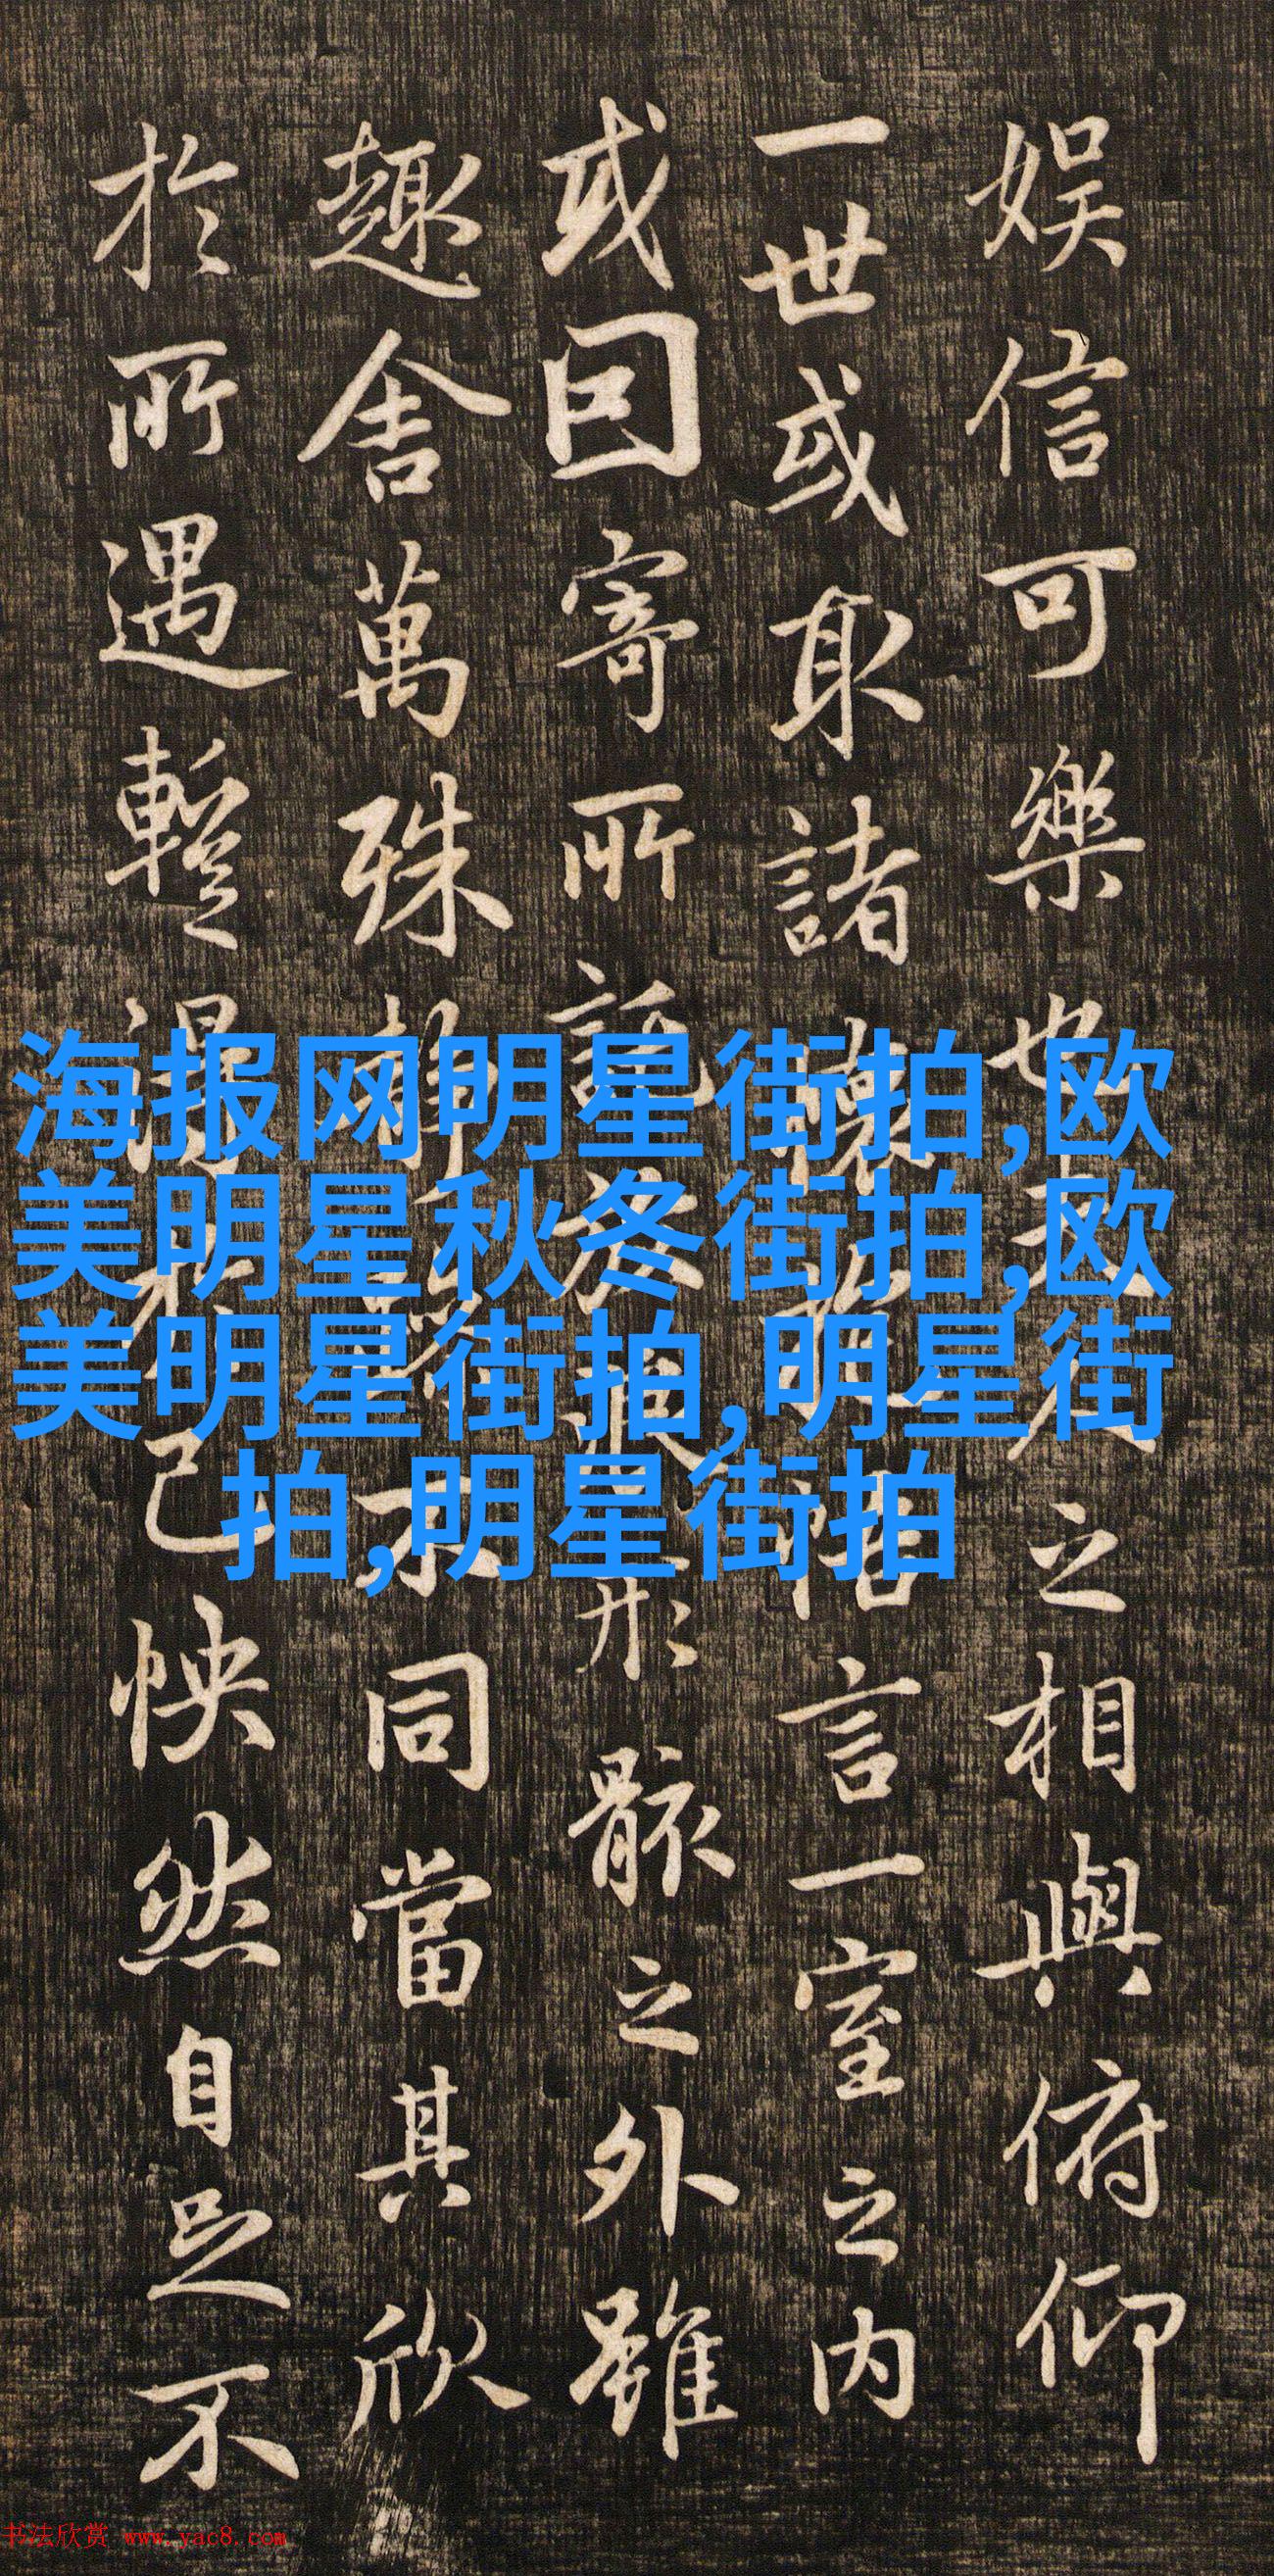 娱信可樂也夫人之相與俯仰
一世或取諸懷抱悟言一室之内
或因寄所託放浪形骸之外雖
趣舍萬殊静躁不同當其欣
於所遇暫得於己怏然自足不
海报网明星街拍,欧
美明星秋冬街拍,欧
美明星街拍,明星街
拍,明星街拍
书法欣赏 www.yac8.com